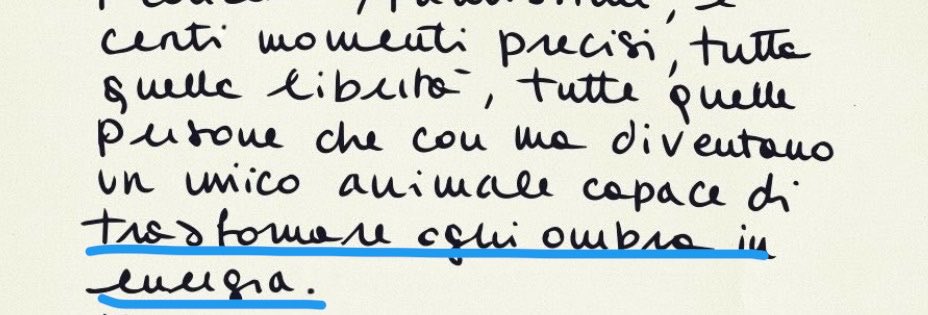 certi momenti precisi, tutta
quella libertà, tutte quelle
persone che con me diventano
un unico animale capace di
trasformare ogni ombra in
energia.